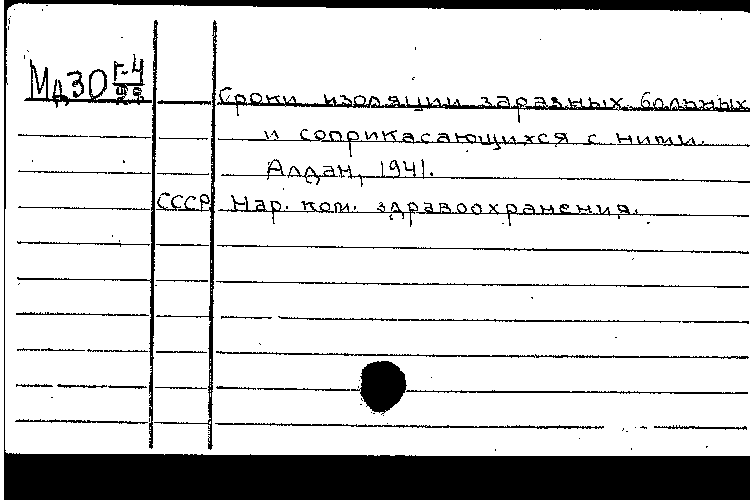 Мд30 Г-4
Сроки изоляции заразных больных
и соприкасающихся с ними.
Алдан, 1941.
СССР Нар. ком. здравоохранения.